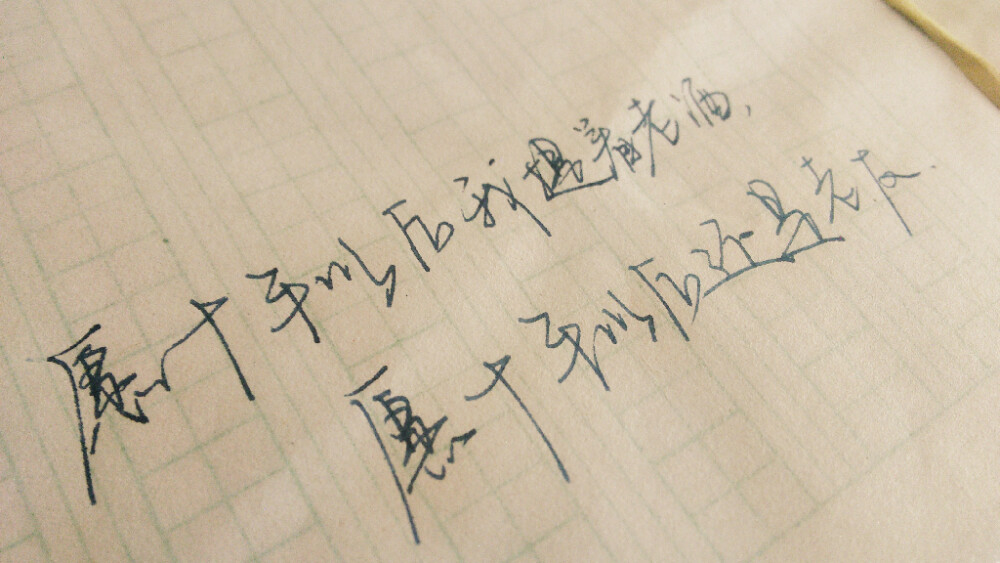 愿十年以后我还温着老酒,
愿十年以后还是老友.